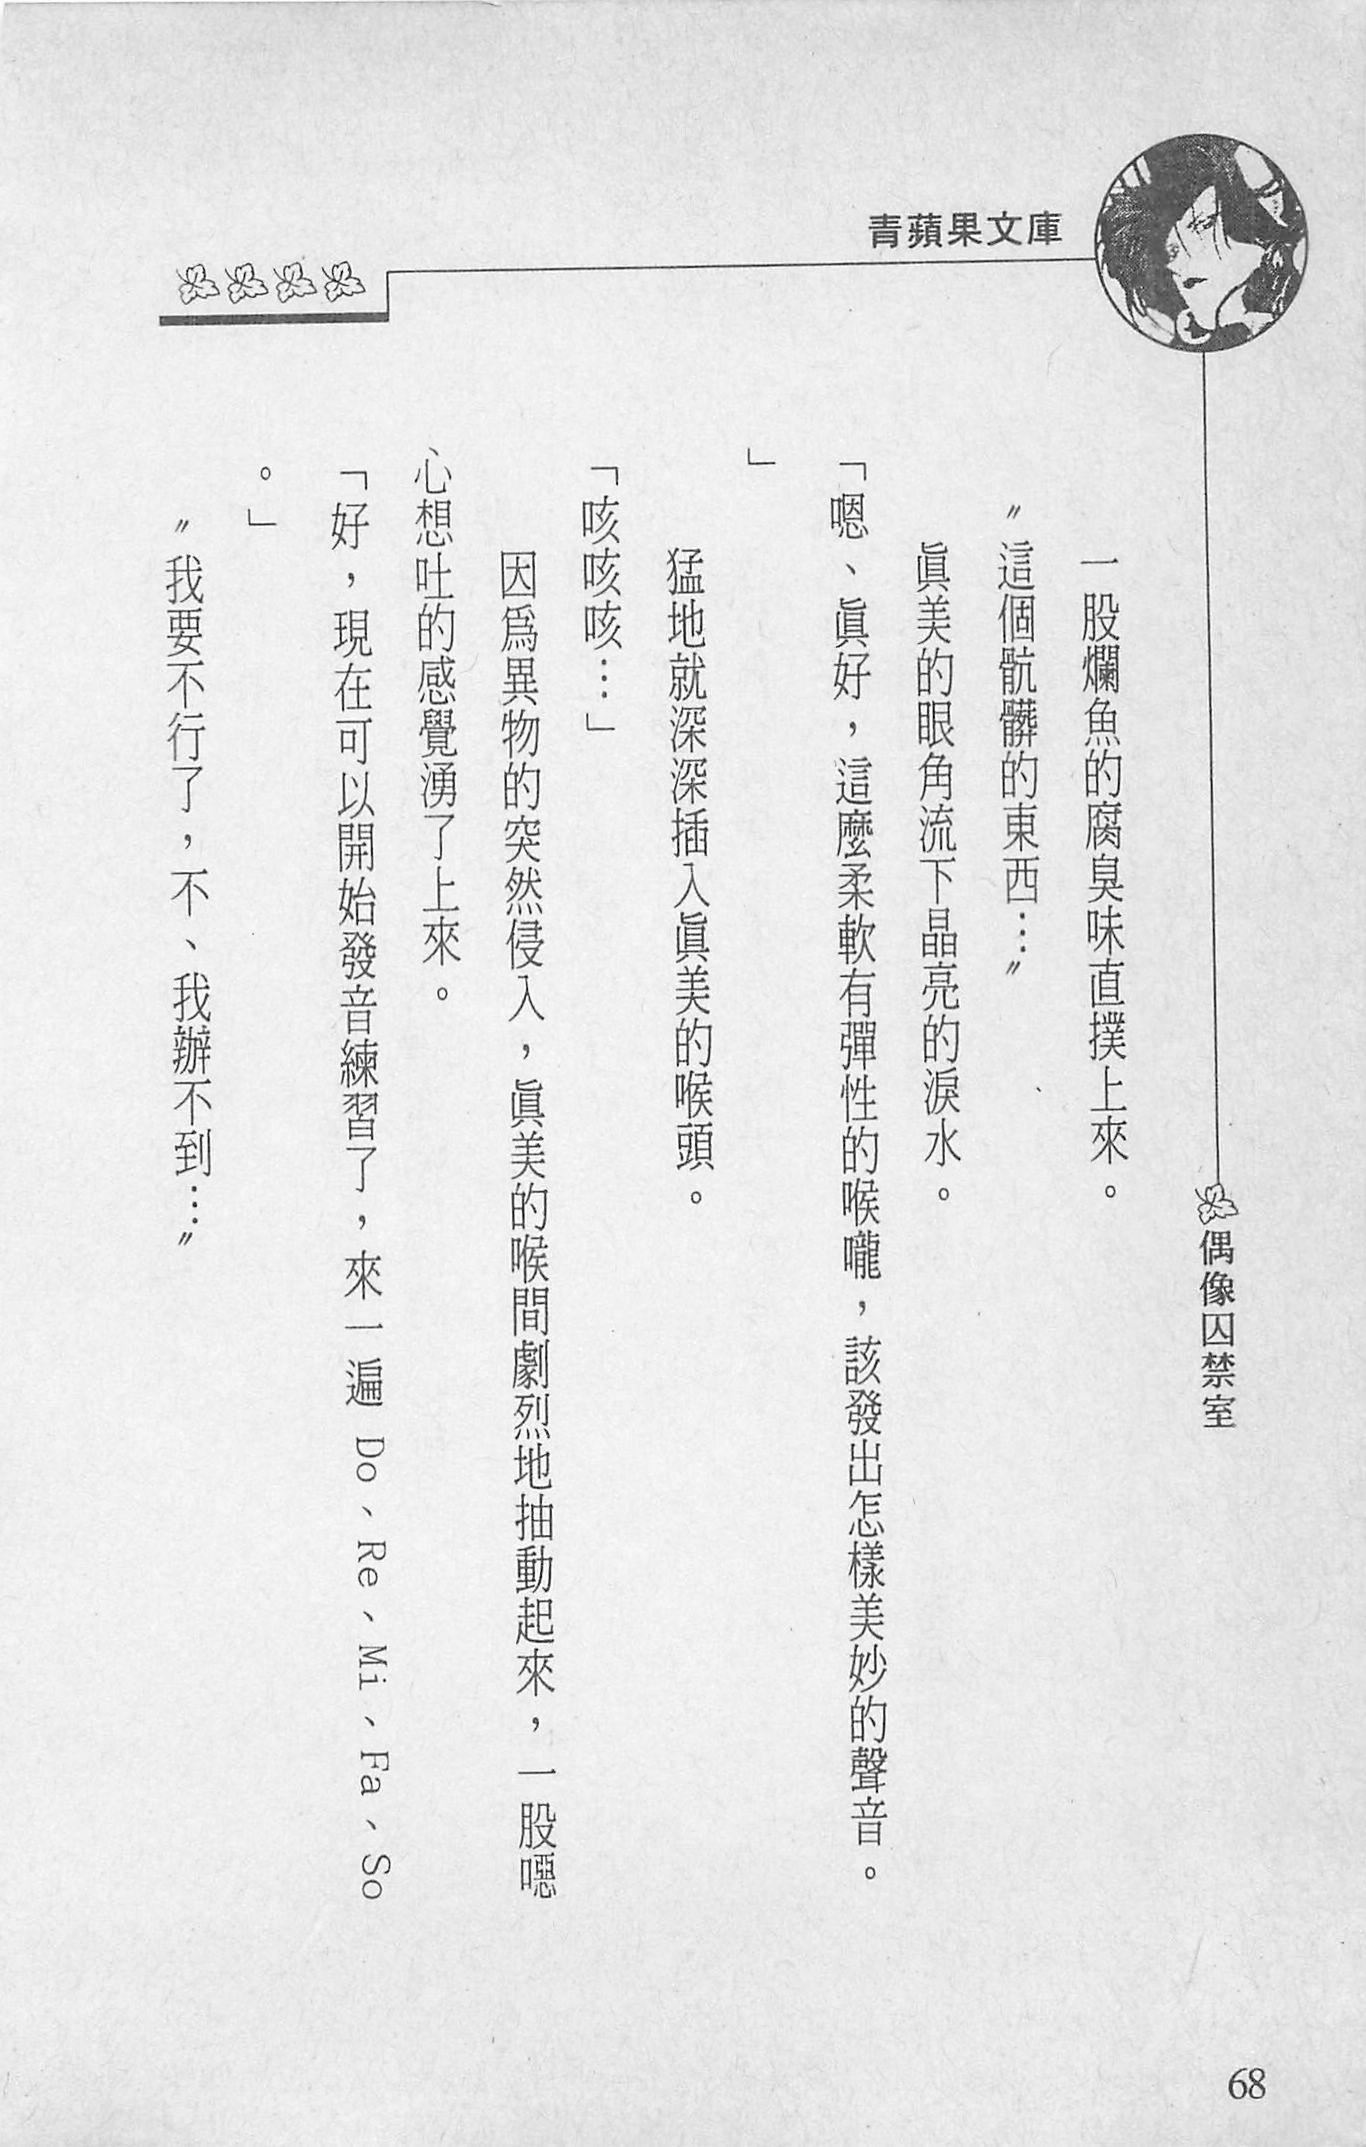 青蘋果文庫
偶像囚禁室
一股爛魚的腐臭味直撲上來。
〝這個骯髒的東西…〞
眞美的眼角流下晶亮的淚水。
「嗯、眞好，這麼柔軟有彈性的喉嚨，該發出怎樣美妙的聲音。
」
猛地就深深插入眞美的喉頭。
「咳咳咳…」
因爲異物的突然侵入，眞美的喉間劇烈地抽動起來，一股噁
心想吐的感覺湧了上來。
「好，現在可以開始發音練習了，來一遍 Do、Re、Mi、Fa、So
。」
〝我要不行了，不、我辦不到…〞
68